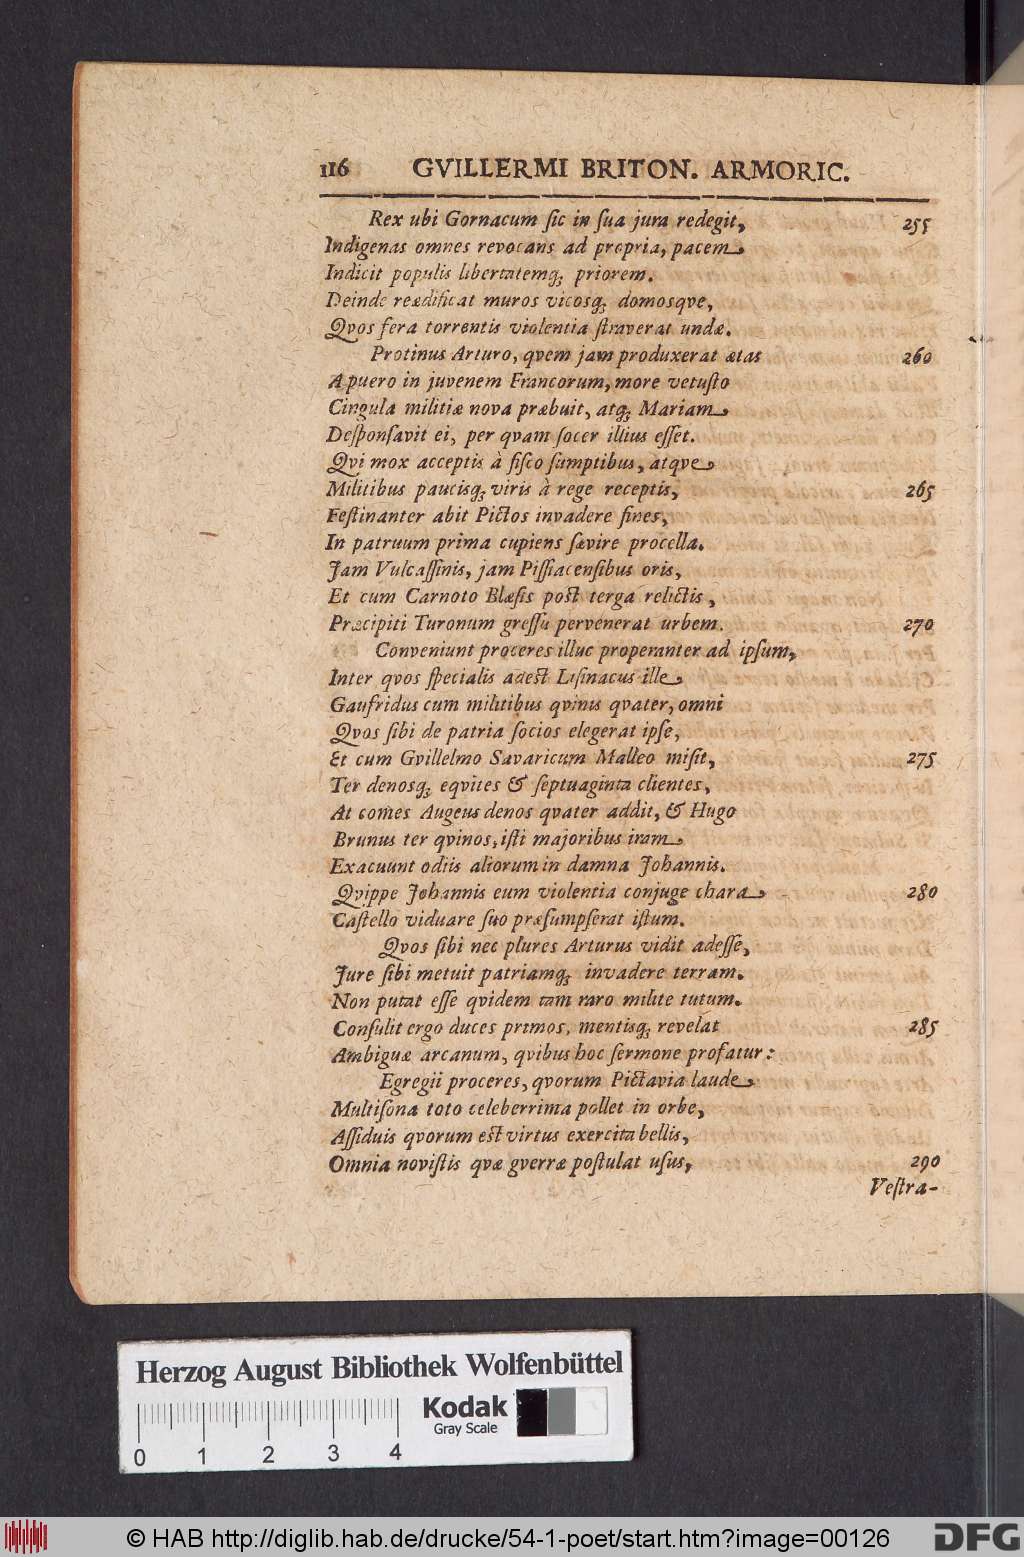 116 GVILLERMI BRITON. ARMORIC.
Rex ubi Gornacum ſic in ſua jura redegit, 255
Indigenas omnes revocans ad propria, pacem
Indicit populis libertatemq; priorem.
Deinde reædificat muros vicosq; domosqve,
Qvos fera torrentis violentia ſtraverat undæ.
Protinus Arturo, qvem jam produxerat ætas 260
A puero in juvenem Francorum, more vetuſto
Cingula militiæ nova præbuit, atq; Mariam
Deſponſavit ei, per qvam ſocer illius eſſet.
Qvi mox acceptis à fiſco ſumptibus, atqve
Militibus paucisq; viris à rege receptis, 265
Feſtinanter abit Pictos invadere fines,
In patruum prima cupiens ſævire procella.
Jam Vulcaſſinis, jam Piſſiacenſibus oris,
Et cum Carnoto Blæſis poſt terga relictis,
Præcipiti Turonum greſſu pervenerat urbem. 270
Conveniunt proceres illuc properanter ad ipſum,
Inter qvos ſpecialis adeſt Liſinacus ille
Gaufridus cum militibus qvinis qvater, omni
Qvos ſibi de patria ſocios elegerat ipſe,
Et cum Gvillelmo Savaricum Malleo miſit, 275
Ter denosq; eqvites & ſeptuaginta clientes,
At comes Augeus denos qvater addit, & Hugo
Brunus ter qvinos, iſti majoribus iram
Exacuunt odiis aliorum in damna Johannis.
Qvippe Johannis eum violentia conjuge chara 280
Caſtello viduare ſuo præſumpſerat iſtum.
Qvos ſibi nec plures Arturus vidit adeſſe,
Jure ſibi metuit patriamq; invadere terram.
Non putat eſſe qvidem tam raro milite tutum.
Conſulit ergo duces primos, mentisq; revelat 285
Ambiguæ arcanum, qvibus hoc ſermone profatur:
Egregii proceres, qvorum Pictavia laude
Multiſona toto celeberrima pollet in orbe,
Aſſiduis qvorum eſt virtus exercita bellis,
Omnia noviſtis qvæ gverræ poſtulat uſus, 290
Veſtra-
Herzog August Bibliothek Wolfenbüttel
Kodak
Gray Scale
0 1 2 3 4
© HAB http://diglib.hab.de/drucke/54-1-poet/start.htm?image=00126
DFG